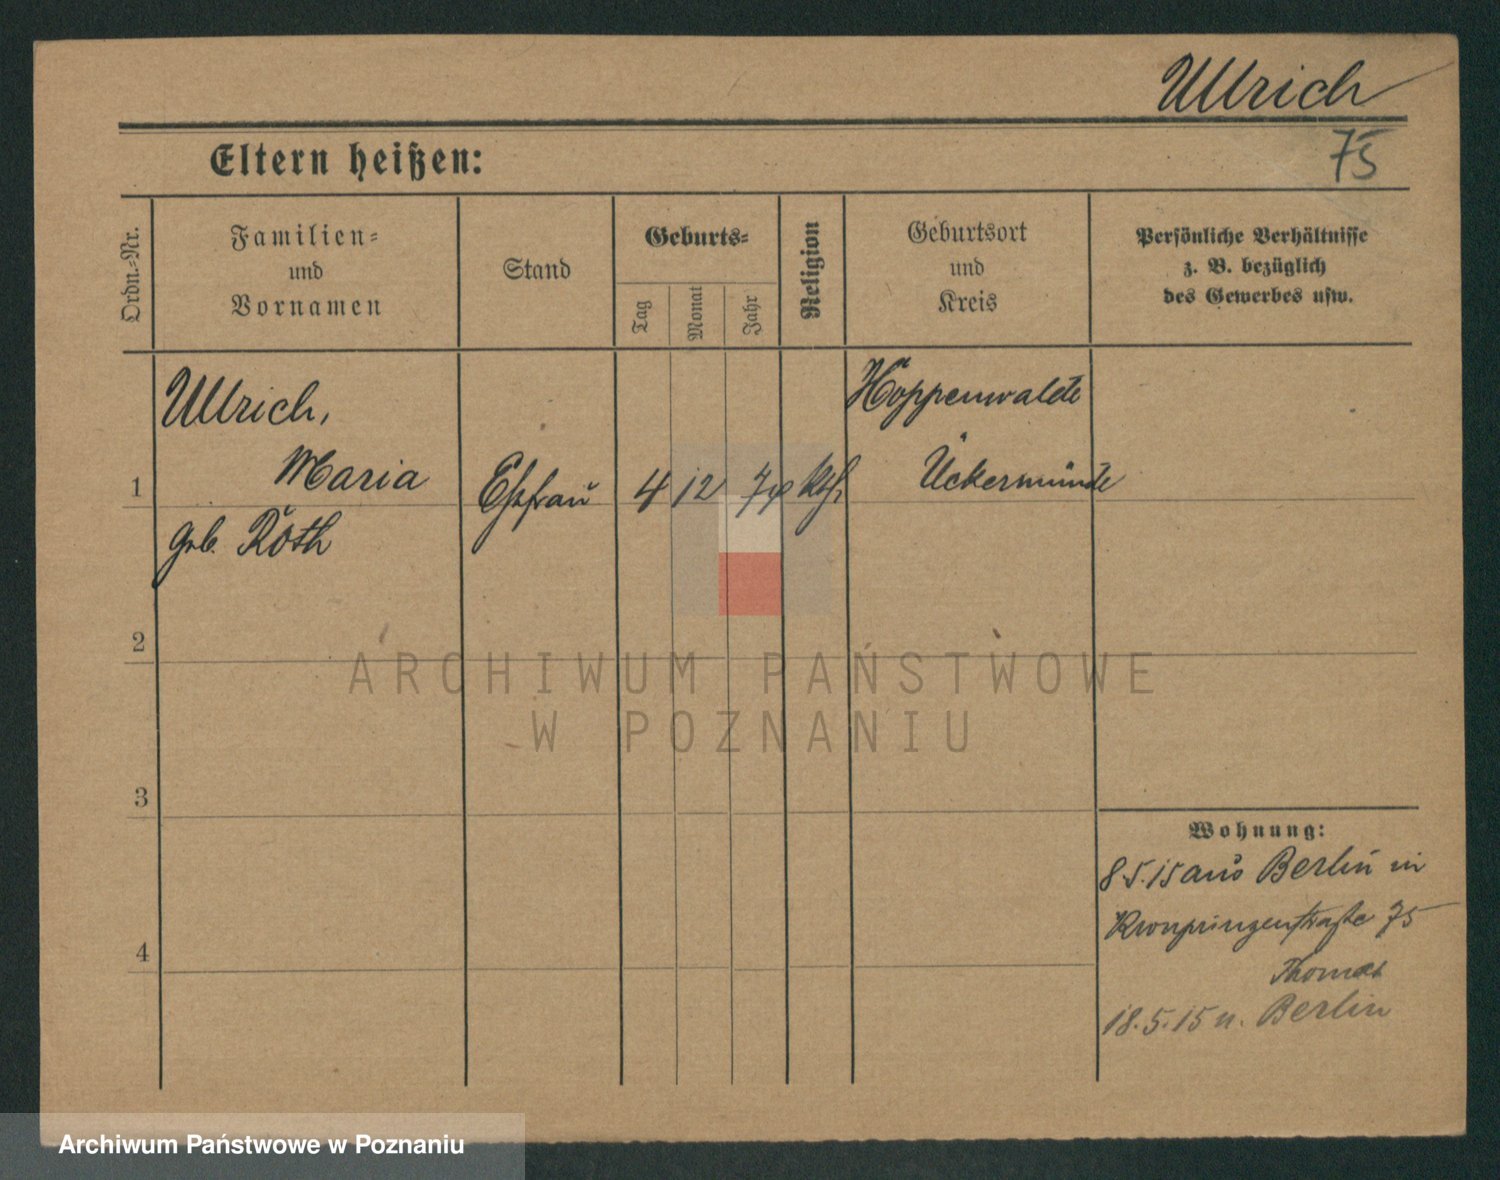 Ullrich
Eltern heißen:
75
Ordn.-Nr.
Familien-
und
Vornamen
Stand
Geburts-
Tag
Monat
Jahr
Religion
Geburtsort
und
Kreis
Persönliche Verhältnisse
z. B. bezüglich
des Gewerbes usw.
Ullrich,
Hoppenwalde
1 Maria Ehefrau 4 12 kth. Ückermünde
geb. Roth
2
ARCHIWUM PAŃSTWOWE
W POZNANIU
3
Wohnung:
8.5.15 aus Berlin in
Kronprinzenstraße 75
4
Thomas
18.5.15 n. Berlin
Archiwum Państwowe w Poznaniu